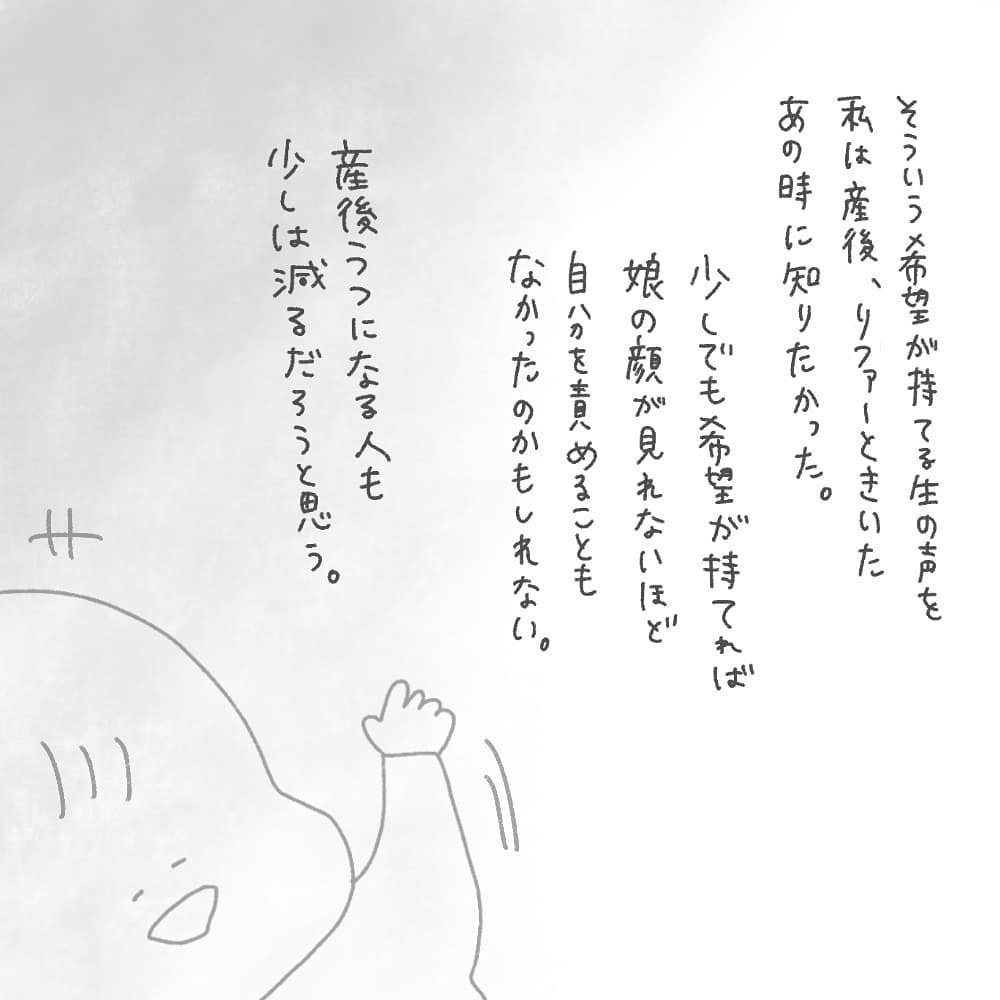 そういう希望が持てる生の声を
私は産後、リファーときいた
あの時に知りたかった。
少しでも希望が持てれば
娘の顔が見れないほど
自分を責めることも
なかったのかもしれない。
産後うつになる人も
少しは減るだろうと思う。